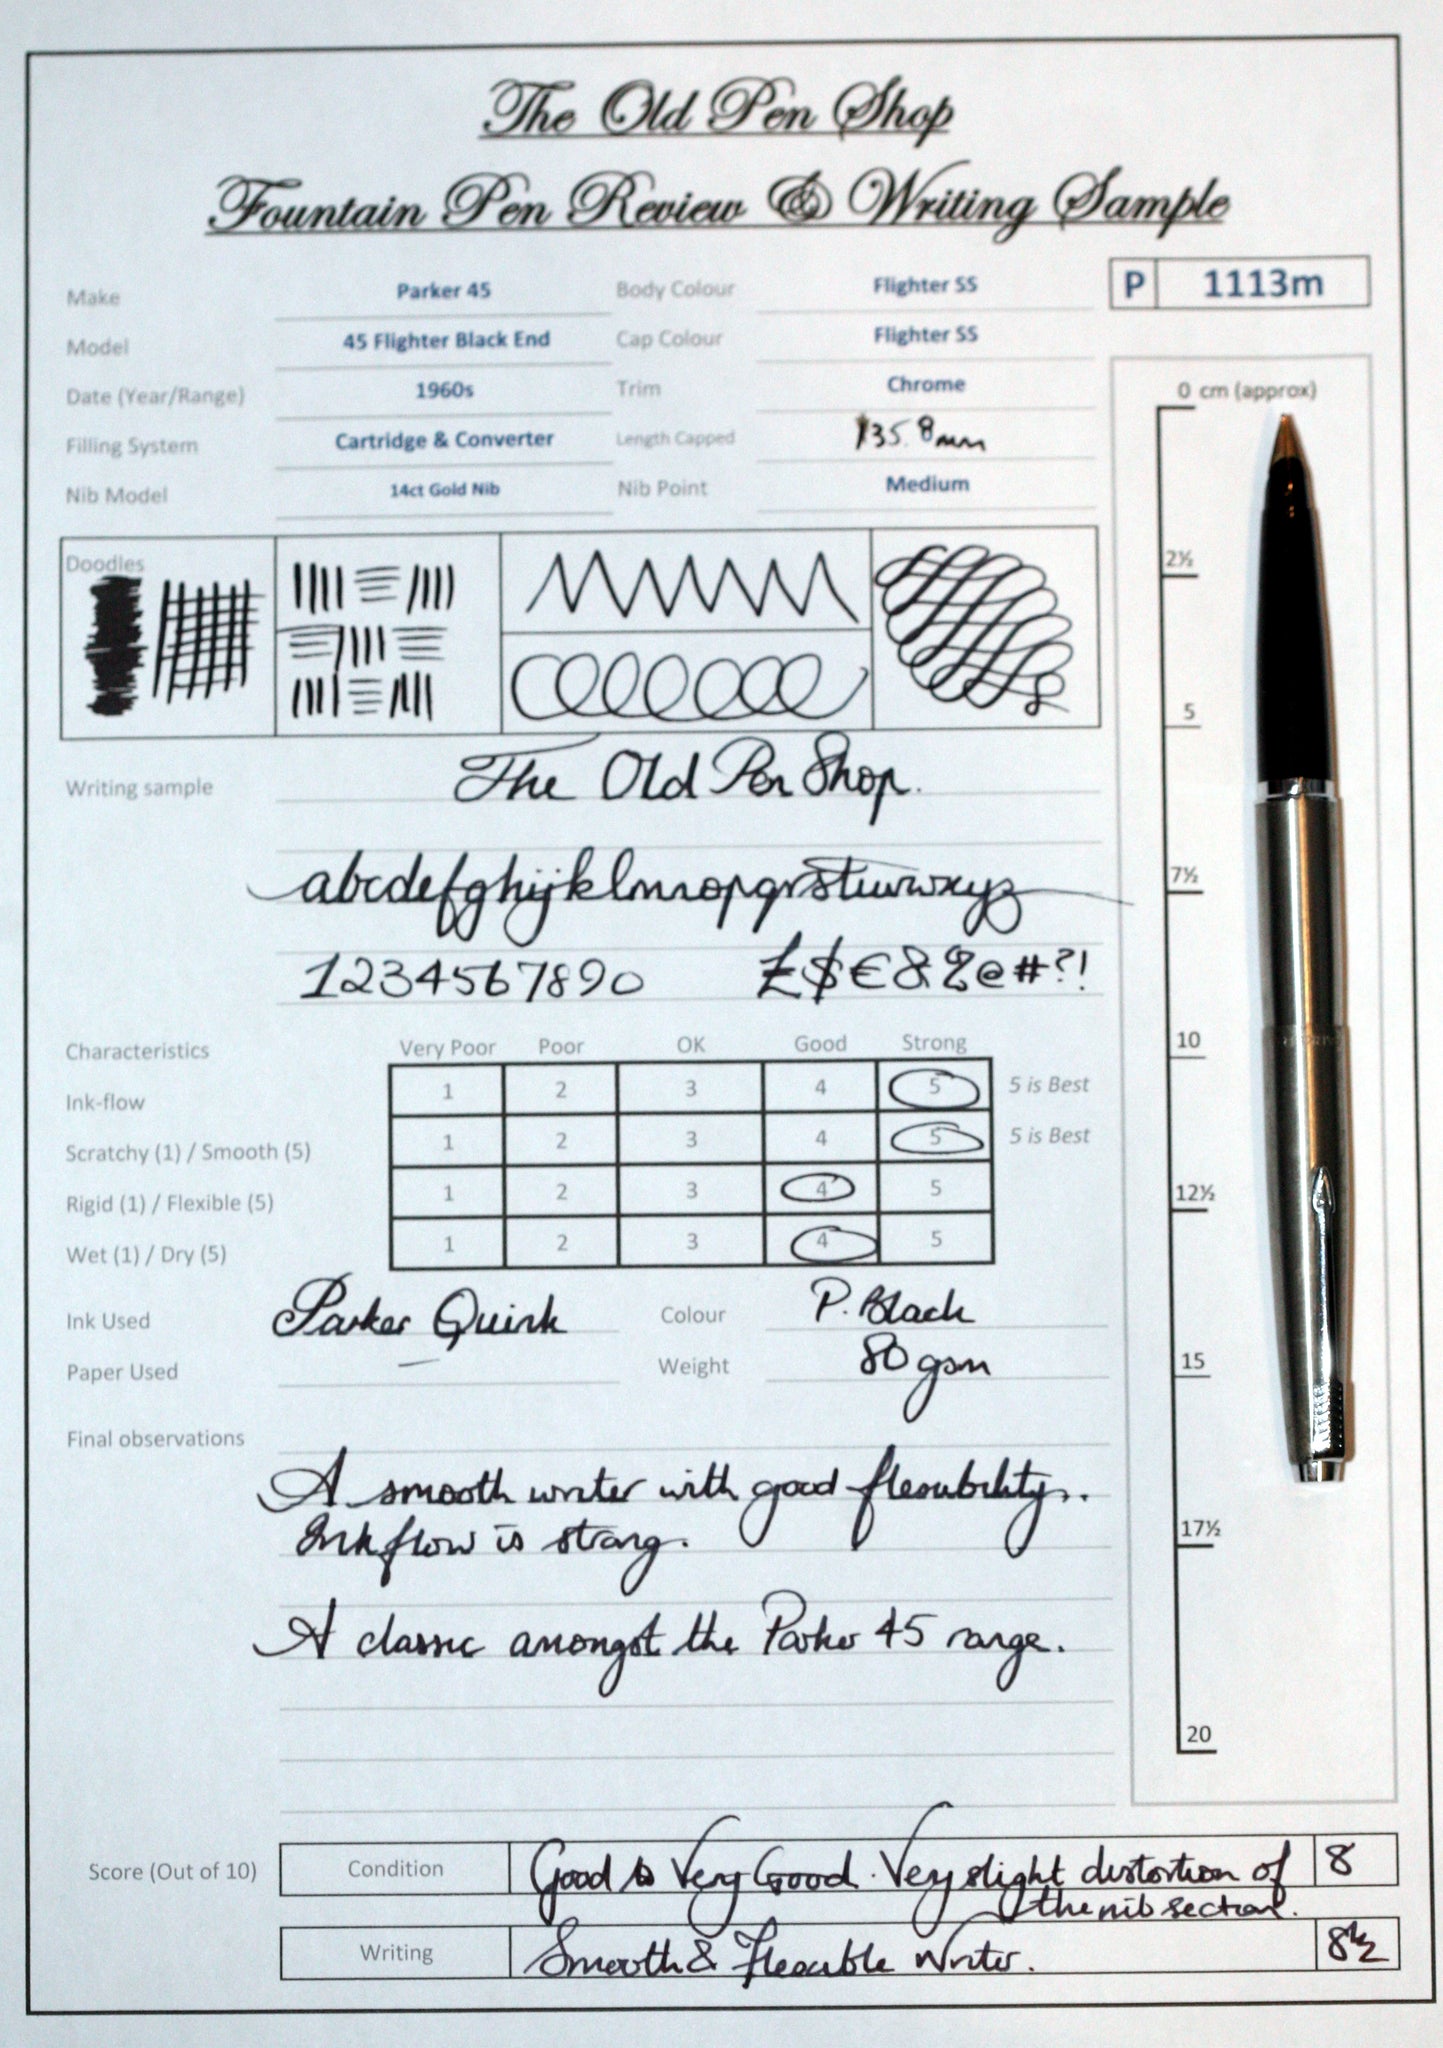 The Old Pen Shop
Fountain Pen Review & Writing Sample
Make Parker 45 Body Colour Flighter SS P 1113m
Model 45 Flighter Black End Cap Colour Flighter SS
Date (Year/Range) 1960s Trim Chrome
Filling System Cartridge & Converter Length Capped 135.8mm
Nib Model 14ct Gold Nib Nib Point Medium
0 cm (approx)
2½
5
7½
10
12½
15
17½
20
Doodles
Writing sample The Old Pen Shop.
abcdefghijklmnopqrstuvwxyz
1234567890 £$€&%@#?!
Characteristics Very Poor Poor OK Good Strong
Ink-flow 1 2 3 4 5 5 is Best
Scratchy (1) / Smooth (5) 1 2 3 4 5 5 is Best
Rigid (1) / Flexible (5) 1 2 3 4 5
Wet (1) / Dry (5) 1 2 3 4 5
Ink Used Parker Quink Colour P. Black
Paper Used — Weight 80gsm
Final observations
A smooth writer with good flexibility.
Ink flow is strong.
A classic amongst the Parker 45 range.
Score (Out of 10) Condition Good to Very Good. Very slight distortion of 8
the nib section.
Writing Smooth & Flexible Writer. 8½